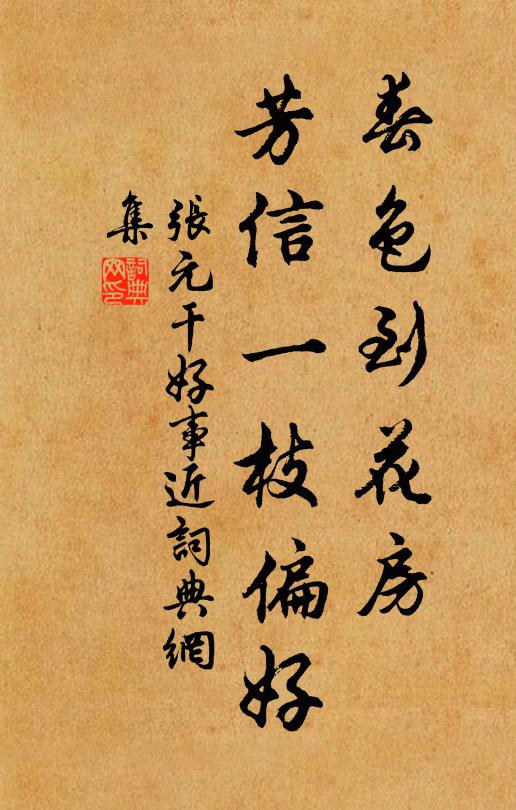 春色到花房
芳信一枝偏好
張元干好事近詞典網
集
詞典網印